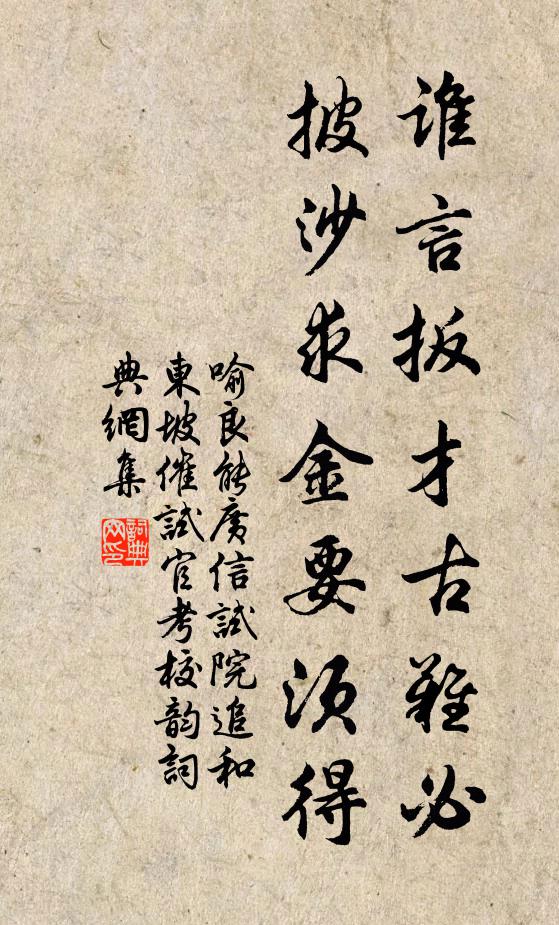 谁言扳才古難必
披沙求金要須得
喻良能廣信試院追和
東坡催試官考校韵詞
典網集
詞典网印